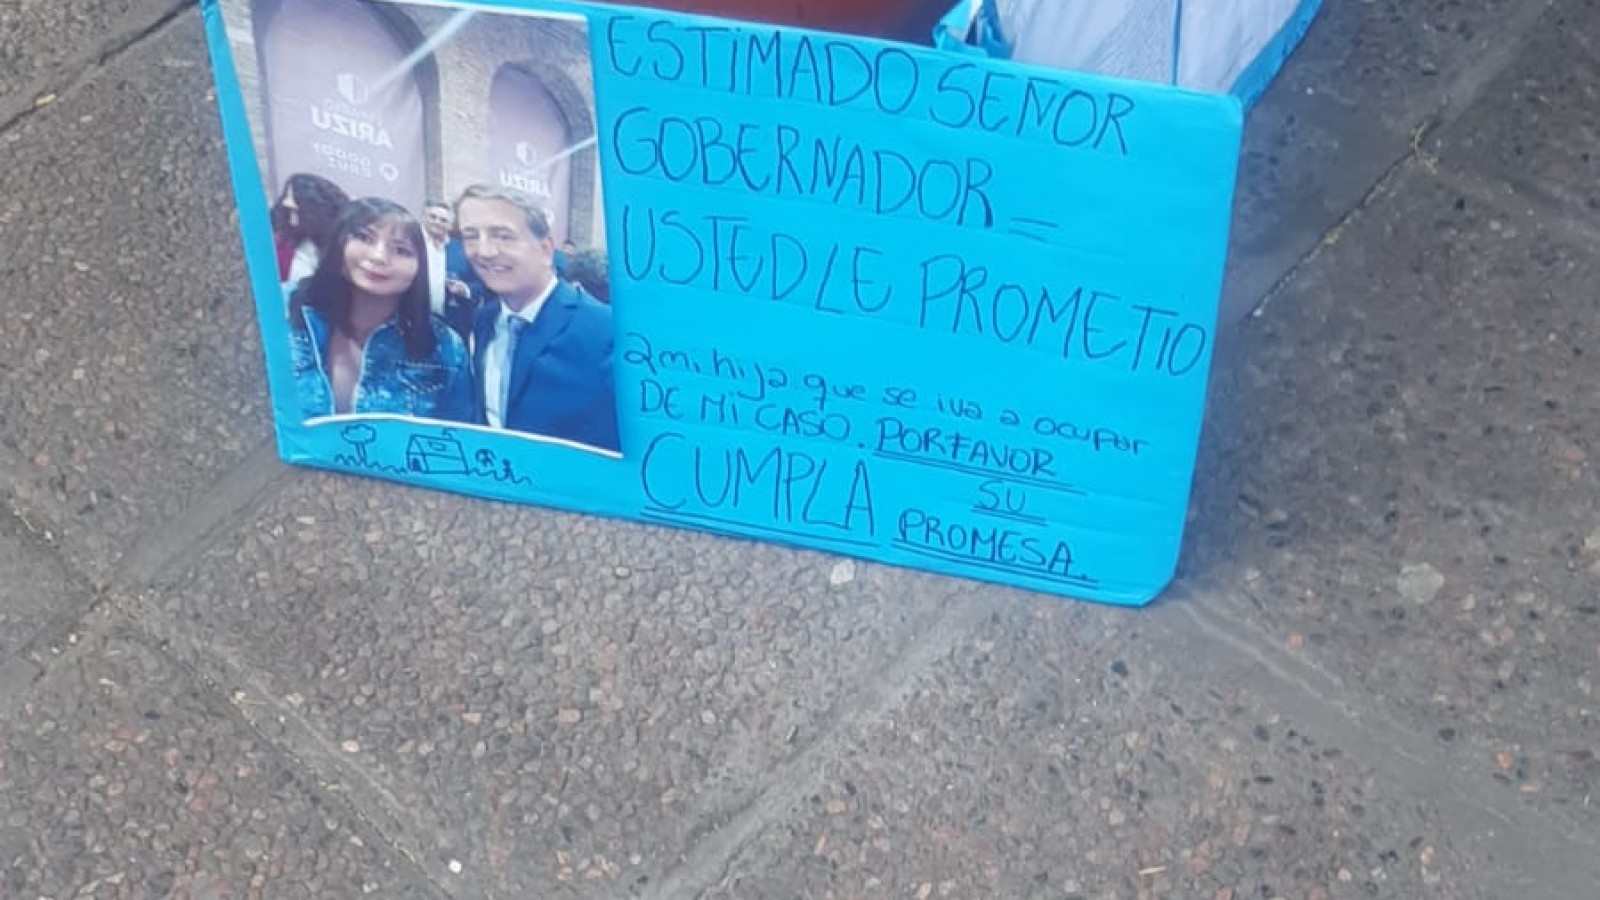 ARIZU
GODOY
CRUZ
ARIZU
ESTIMADO SEÑOR
GOBERNADOR =
USTED LE PROMETIO
a mi hija que se iva a ocupar
DE MI CASO. PORFAVOR
SU
CUMPLA PROMESA.